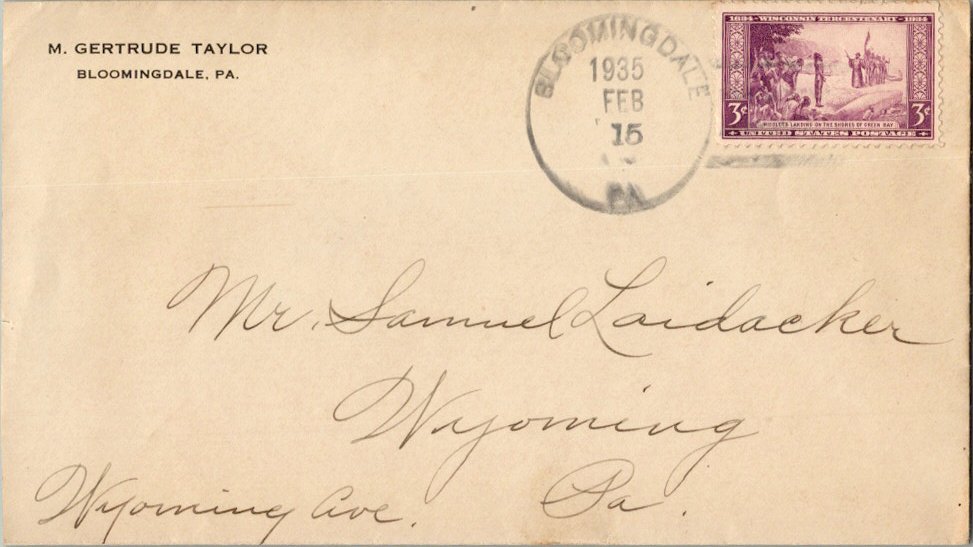 M. GERTRUDE TAYLOR
BLOOMINGDALE, PA.
BLOOMINGDALE
1935
FEB
15
PA
1634 - WISCONSIN TERCENTENARY - 1934
3¢ 3¢
NICOLET'S LANDING ON THE SHORES OF GREEN BAY
UNITED STATES POSTAGE
Mr. Samuel Laidacker
Wyoming
Wyoming Ave. Pa.